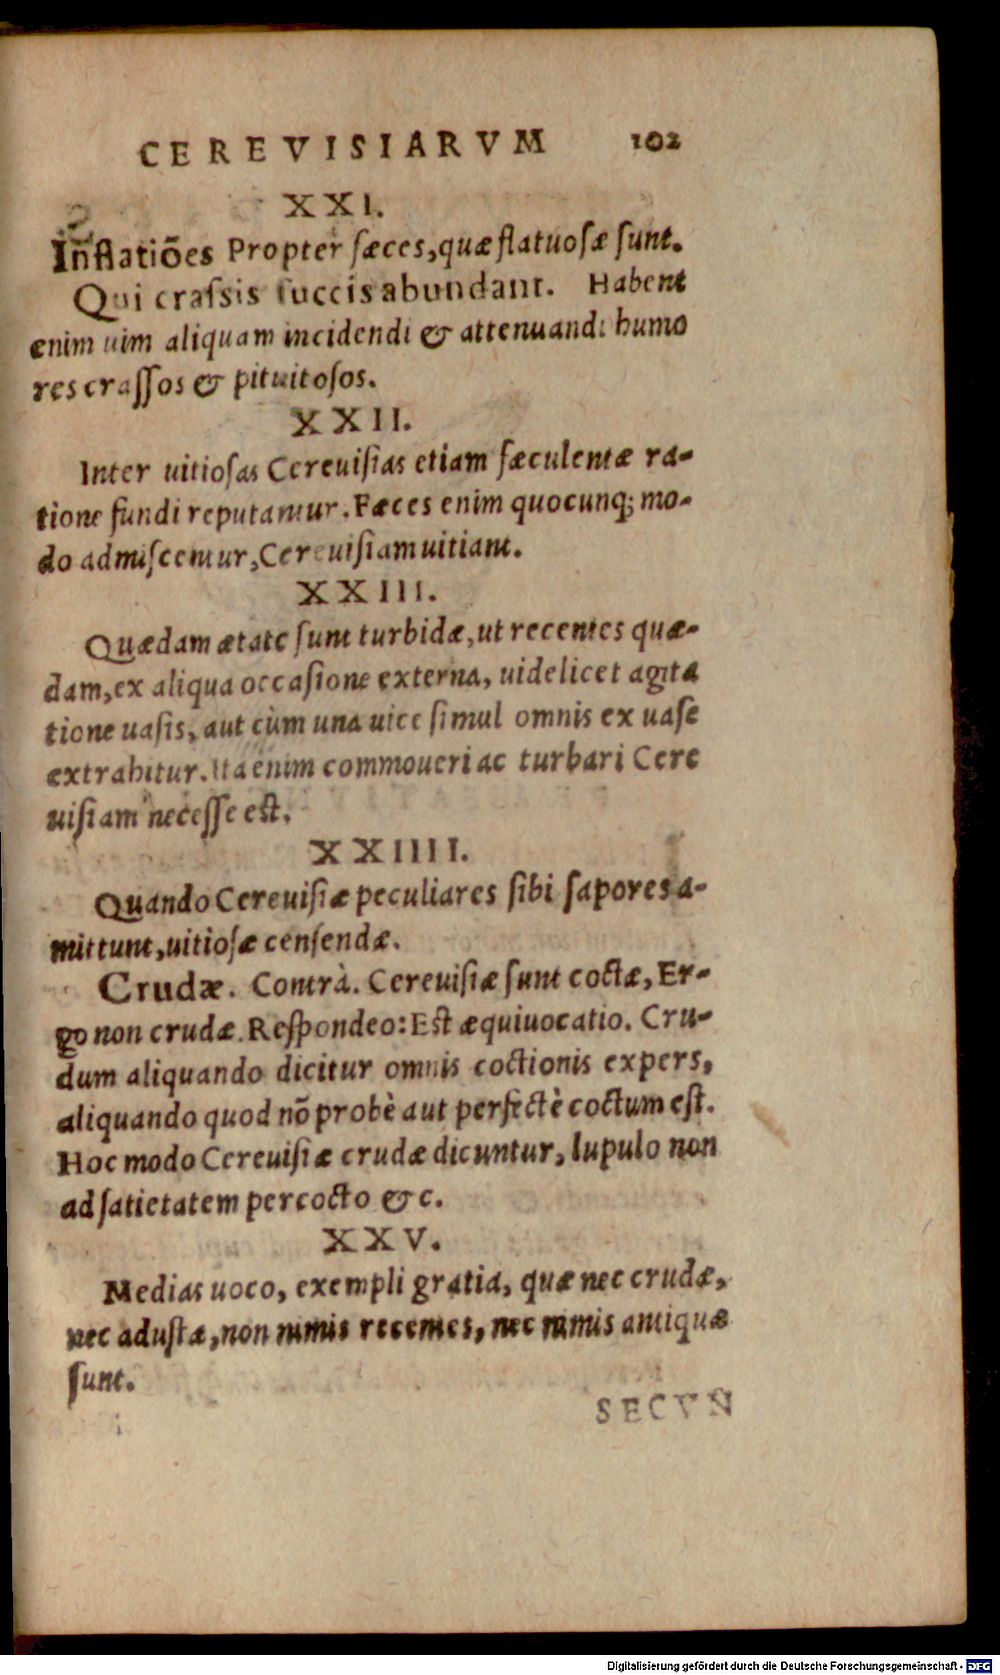 CEREVISIARVM 102
XXI.
Inflatiões Propter fæces, quæ flatuosæ sunt.
Qui crassis succis abundant. Habent
enim uim aliquam incidendi & attenuandi humo
res crassos & pituitosos.
XXII.
Inter uitiosas Cereuisias etiam fæculentæ ra-
tione fundi reputantur. Fæces enim quocunq; mo-
do admiscentur, Cereuisiam uitiant.
XXIII.
Quædam ætate sunt turbidæ, ut recentes quæ-
dam, ex aliqua occasione externa, uidelicet agita
tione uasis, aut cùm una uice simul omnis ex uase
extrahitur. Ita enim commoueri ac turbari Cere
uisiam necesse est.
XXIIII.
Quando Cereuisiæ peculiares sibi sapores a-
mittunt, uitiosæ censendæ.
Crudæ. Contrà. Cereuisiæ sunt coctæ, Er-
go non crudæ. Respondeo: Est æquiuocatio. Cru-
dum aliquando dicitur omnis coctionis expers,
aliquando quod nõ probè aut perfectè coctum est.
Hoc modo Cereuisiæ crudæ dicuntur, lupulo non
ad satietatem percocto &c.
XXV.
Medias uoco, exempli gratia, quæ nec crudæ,
nec adustæ, non nimis recentes, nec nimis antiquæ
sunt.
SECVN
Digitalisierung gefördert durch die Deutsche Forschungsgemeinschaft - DFG